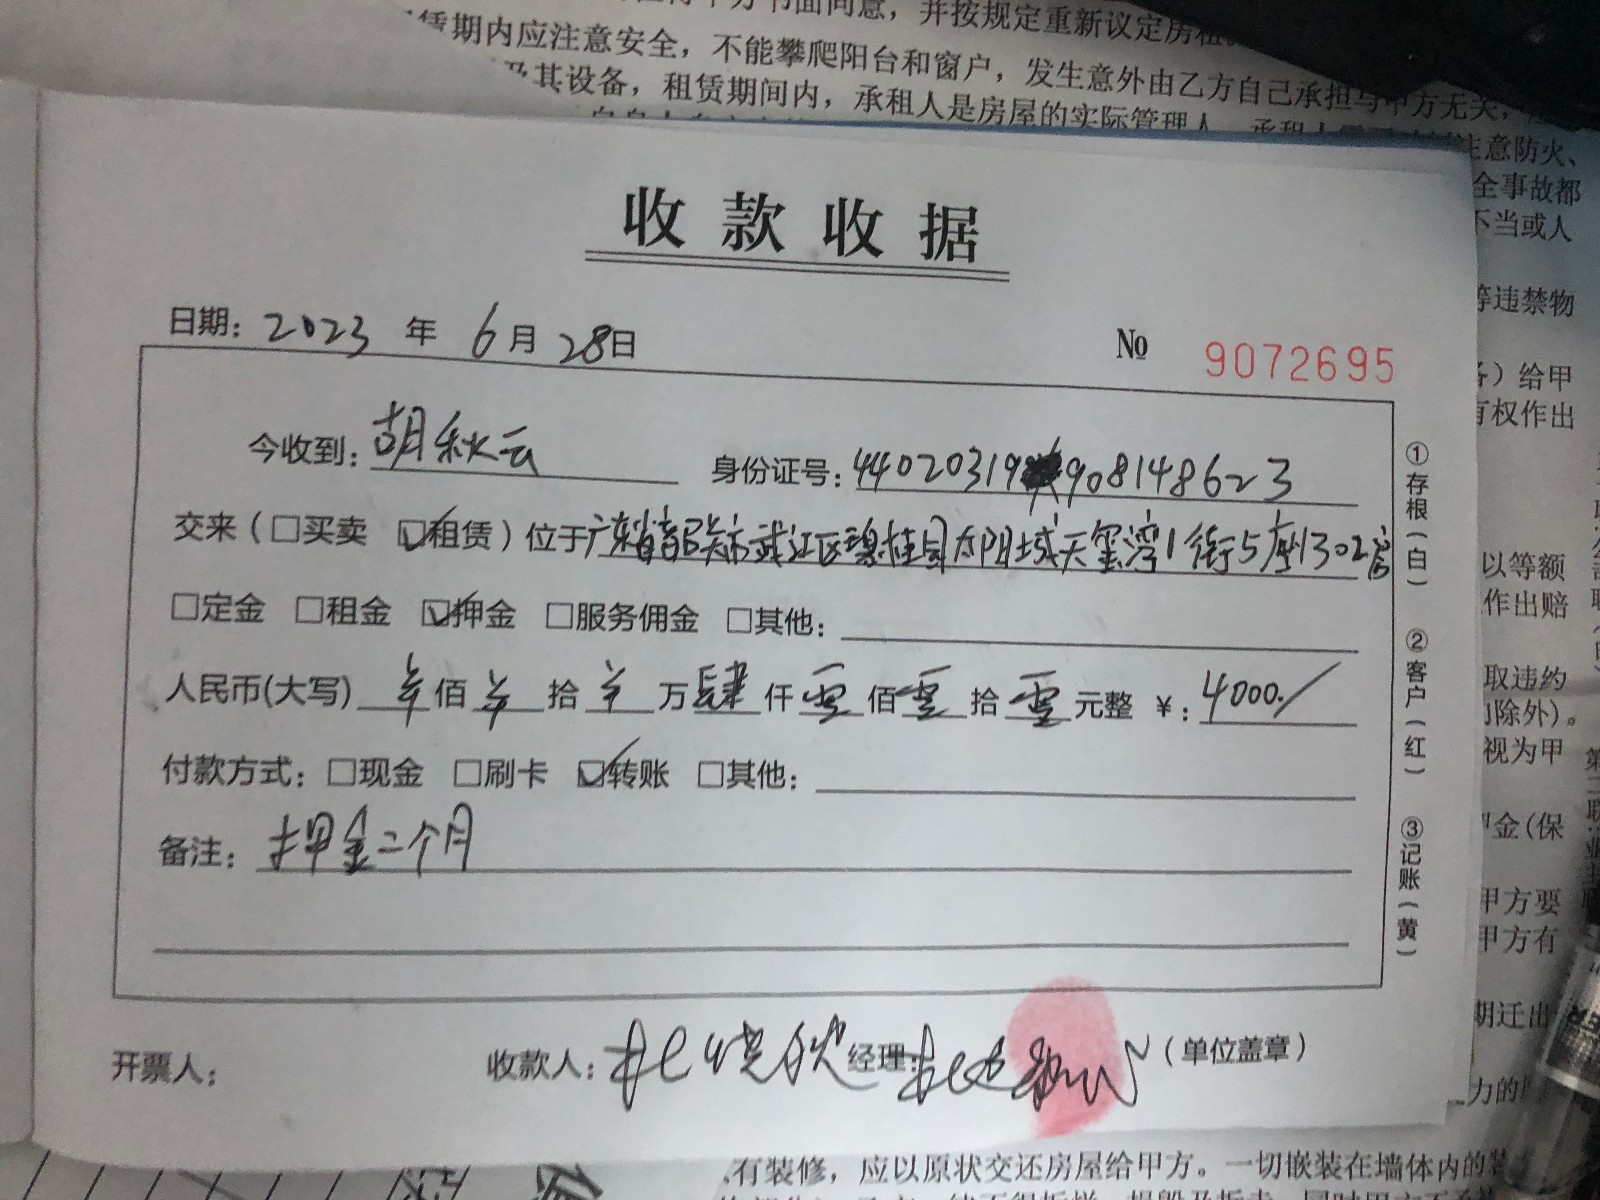 期内应注意安全，不能攀爬阳台和窗户，发生意外由乙方自己承担与甲方无关，
及其设备，租赁期间内，承租人是房屋的实际管理人，
注意防火、
全事故都
不当或人
等违禁物
给甲
有权作出
以等额
作出赔
取违约
除外)。
视为甲
金(保
甲方要
甲方有
期迁出
收款收据
日期：2023年6月28日 № 9072695
今收到：胡秋云 身份证号：44020319908148623
交来（□买卖 ☑租赁）位于广东省韶关市武江区碧桂园太阳城天玺湾1街5座1302房
□定金 □租金 ☑押金 □服务佣金 □其他：
人民币(大写) 佰 拾 万肆仟零佰零拾零元整 ￥：4000./
付款方式：□现金 □刷卡 ☑转账 □其他：
备注：押金二个月
①存根（白） ②客户（红） ③记账（黄）
开票人； 收款人： 经理： （单位盖章）
有装修，应以原状交还房屋给甲方。一切嵌装在墙体内的装